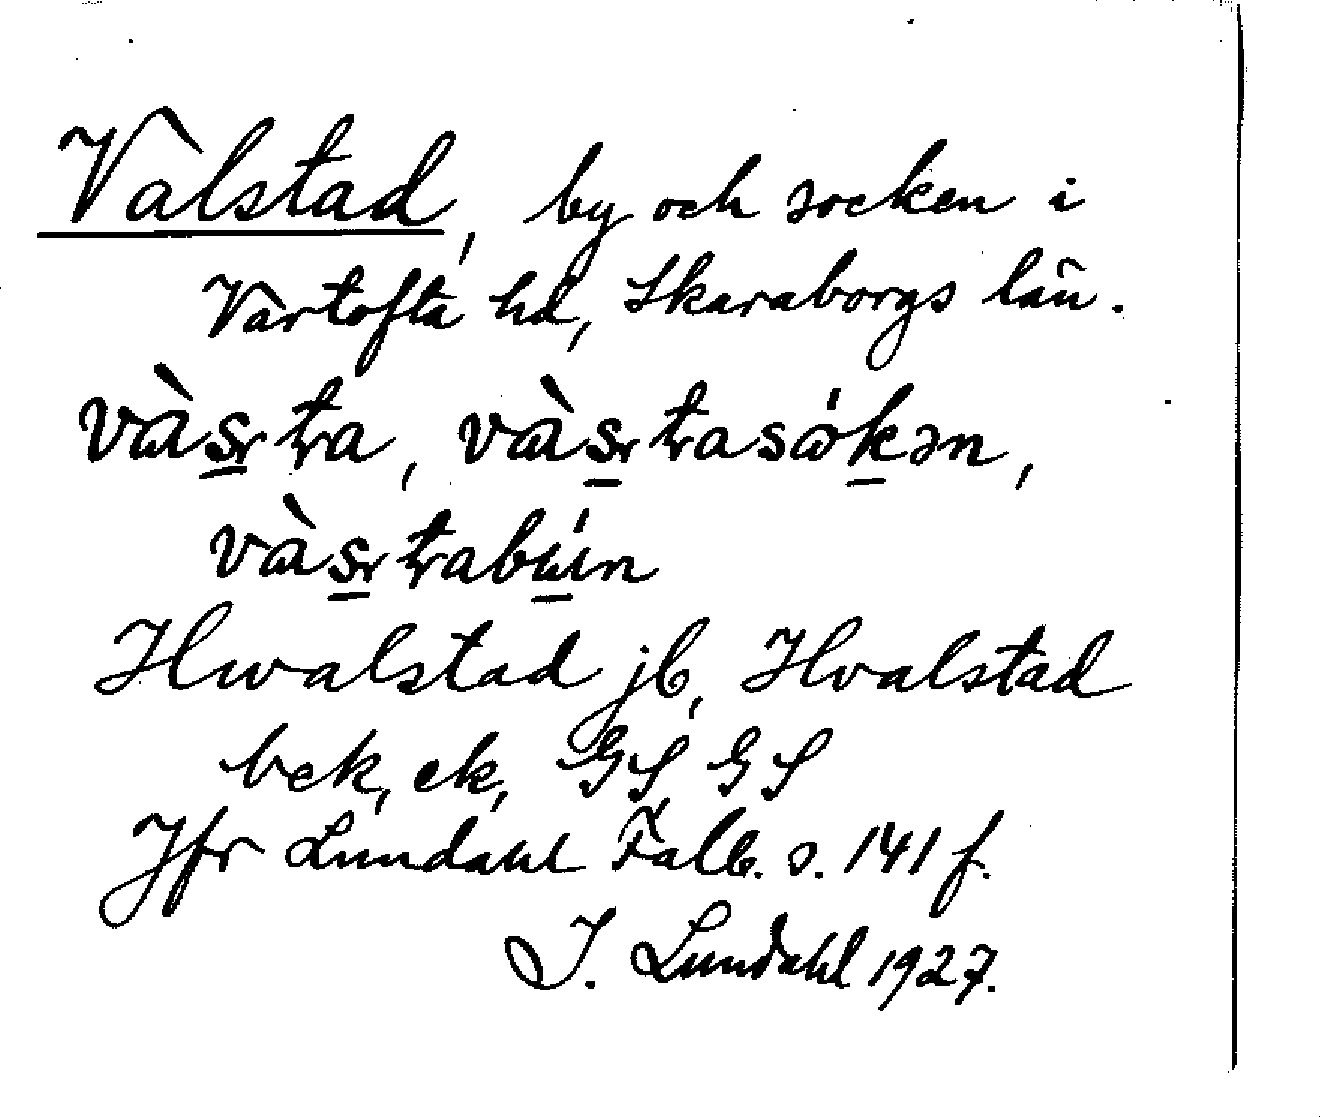 Valstad, by och socken i
Vartofta hd, Skaraborgs län.
và̀s̱tra, và̀s̱trasɷ́ḵən,
và̀s̱trabɯ́n
Hwalstad jb, Hvalstad
bek, ek, GS GS
Jfr Lundahl Falb. s. 141 f.
I. Lundahl 1927.